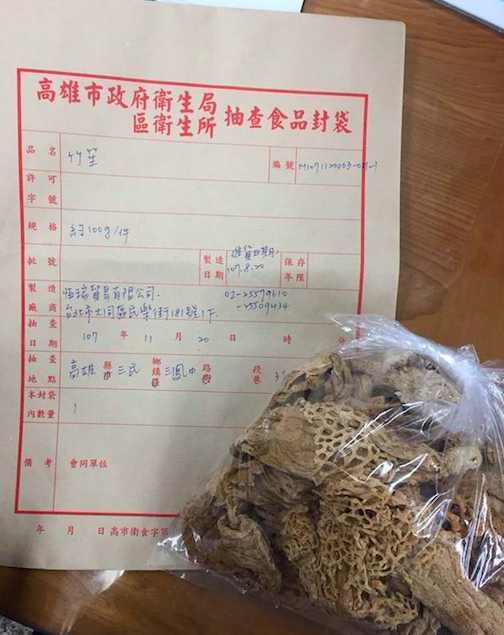 高雄市政府衛生局
區衛生所 抽查食品封袋
品名 竹笙 編號
許可字號
規格 約100g/件
批號 製造日期 進貨日期 107.8.20 保存年限
製造廠商 貿易有限公司. 02-25579610
台北市大同區民樂街181號1F. -25509434
抽查日期 107 年 11 月 20 日 時 分
抽查地點 高雄 縣市 三民 鄉鎮區 三鳳中 路街 段巷
本封袋內數量 1
備考 會同單位
年 月 日 高市衛食字第